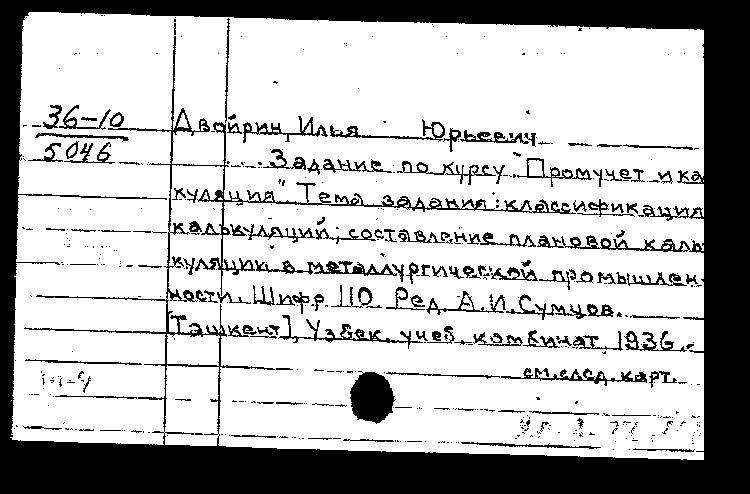 36-10
5046
Двойрин, Илья Юрьевич
... Задание по курсу "Промучет и ка
куляция". Тема задания: классификация
калькуляций; составление плановой каль
куляции в металлургической промышлен-
ности. Шифр 110. Ред. А.И. Сумцов.
[Ташкент], Узбек. учеб. комбинат, 1936.-
см. след. карт.